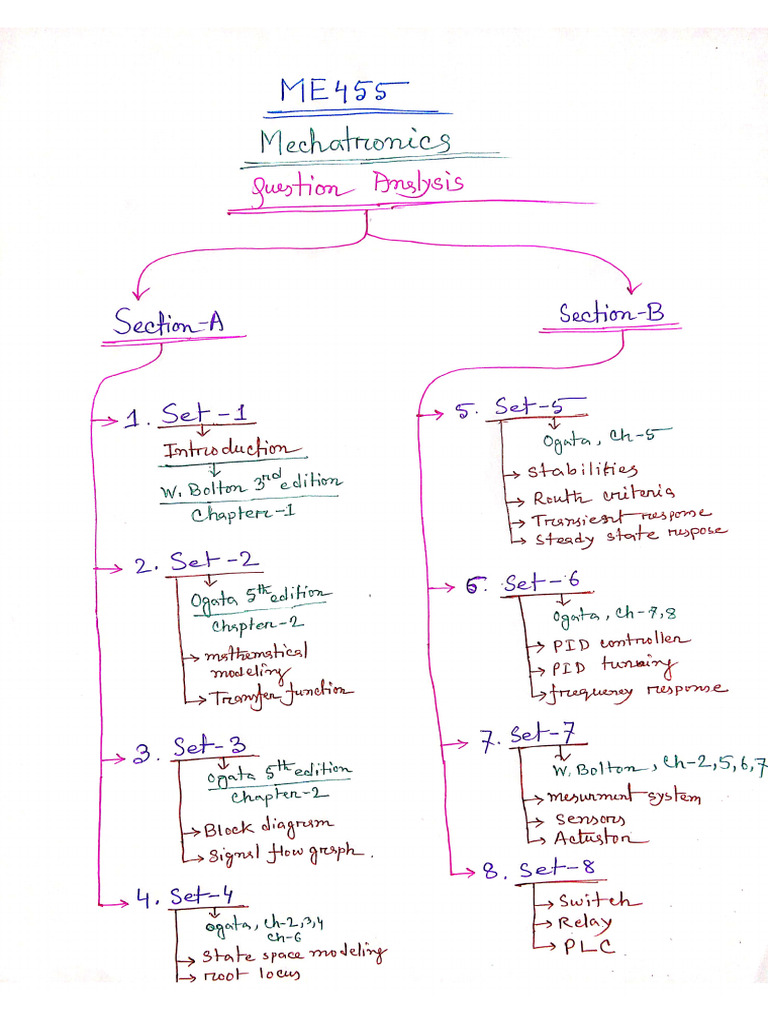 ME455
Mechatronics
Question Analysis
Section-A
1. Set-1
Introduction
W. Bolton 3rd edition
Chapter-1
2. Set-2
Ogata 5th edition
Chapter-2
mathematical
modeling
Transfer function
3. Set-3
Ogata 5th edition
Chapter-2
Block diagram
Signal flow graph.
4. Set-4
Ogata, Ch-2,3,4
Ch-6
State space modeling
root locus
Section-B
5. Set-5
Ogata, Ch-5
Stabilities
Routh criteria
Transient response
Steady state respose
6. Set-6
Ogata, Ch-7,8
PID controller
PID tunning
frequency response
7. Set-7
W. Bolton, Ch-2,5,6,7
mesurment system
Sensors
Actustor
8. Set-8
Switch
Relay
PLC